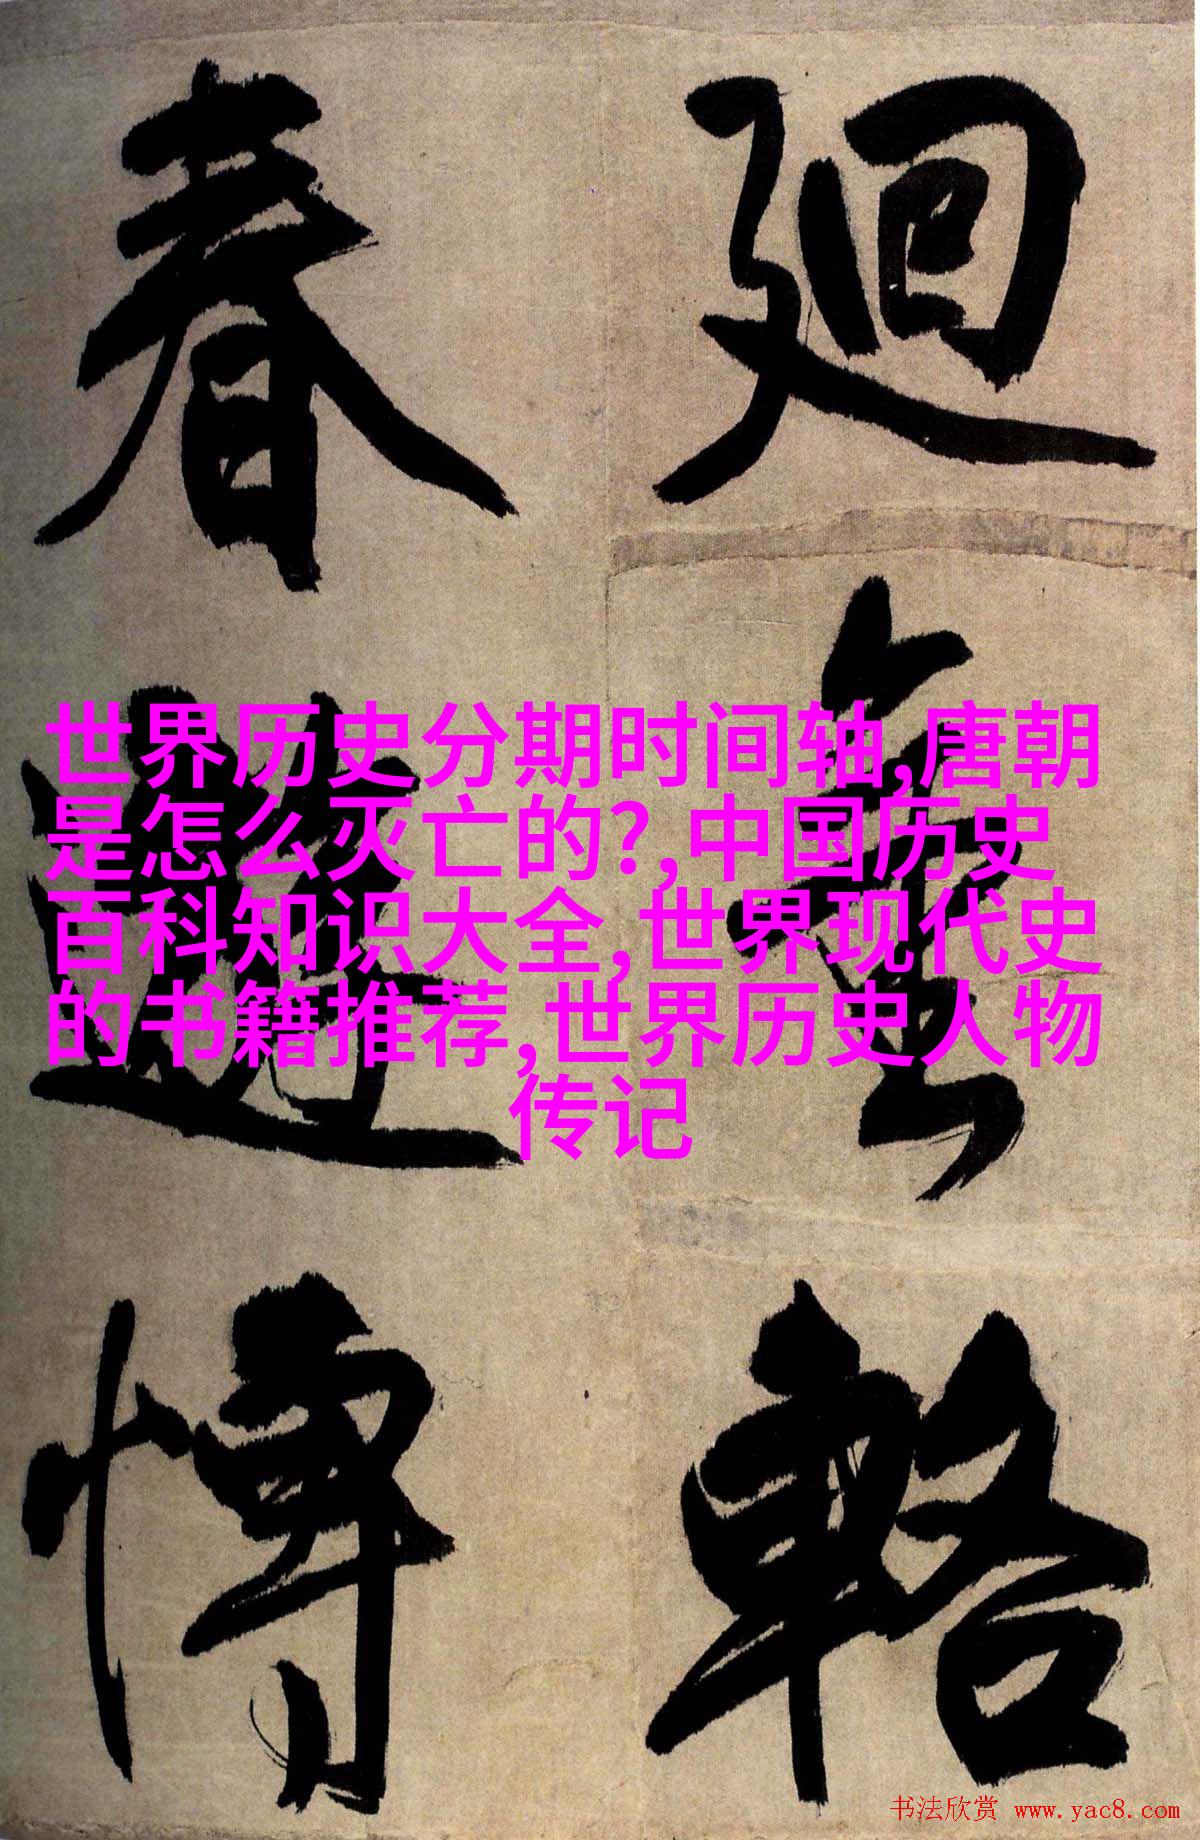 廻
鸞
輅
春
遊
博
世界历史分期时间轴,唐朝
是怎么灭亡的?,中国历史
百科知识大全,世界现代史
的书籍推荐,世界历史人物
传记
书法欣赏 www.yac8.com